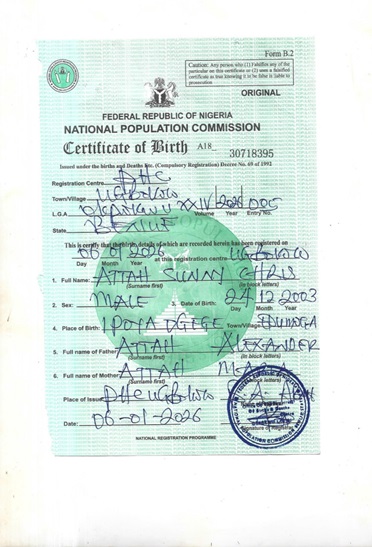 Form B.2
Caution: Any person who (1) Falsifies any of the
particular on this certificate or (2) uses a falsified
certificate as true knowing it to be false is liable to
prosecution
ORIGINAL
FEDERAL REPUBLIC OF NIGERIA
NATIONAL POPULATION COMMISSION
Certificate of Birth A18 30718395
Issued under the births and Deaths Etc. (Compulsory Registration) Decree No. 69 of 1992
Registration Centre PHC
Town/Village UGBOKOLO
L.G.A OKPOKWU XXIV Volume 2026 Year 005 Entry No.
State BENUE
This is certify that the birth, details of which are recorded herein has been registered on
06 01 2026 at this registration centre UGBOKOLO
Day Month Year
1. Full Name: ATTAH SUNNY CHRIS
(Surname first) (in block letters)
2. Sex: MALE 3. Date of Birth: 24 12 2003
Day Month Year
4. Place of Birth: Town/Village EDUMOGA
5. Full name of Father ATTAH ALEXANDER
(Surname first) (in block letters)
6. Full name of Mother ATTAH
(Surname first) (in block letters)
Place of Issue: PHC UGBOKOLO
Date: 06-01-2026
Signature of Registrar
NATIONAL REGISTRATION PROGRAMME